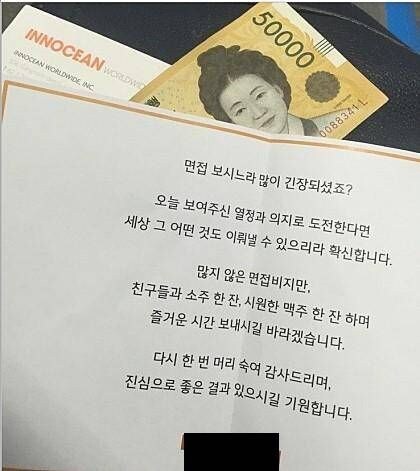 INNOCEAN WORLDWIDE
INNOCEAN WORLDWIDE, INC
50000
0088341 L
면접 보시느라 많이 긴장되셨죠?
오늘 보여주신 열정과 의지로 도전한다면
세상 그 어떤 것도 이뤄낼 수 있으리라 확신합니다.
많지 않은 면접비지만,
친구들과 소주 한 잔, 시원한 맥주 한 잔 하며
즐거운 시간 보내시길 바라겠습니다.
다시 한 번 머리 숙여 감사드리며,
진심으로 좋은 결과 있으시길 기원합니다.